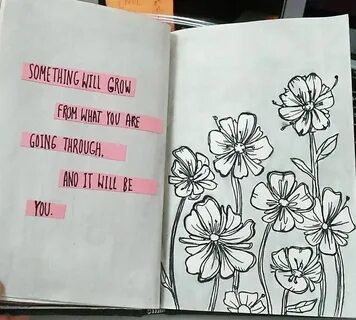 SOMETHING WILL GROW
FROM WHAT YOU ARE
GOING THROUGH,
AND IT WILL BE
YOU.